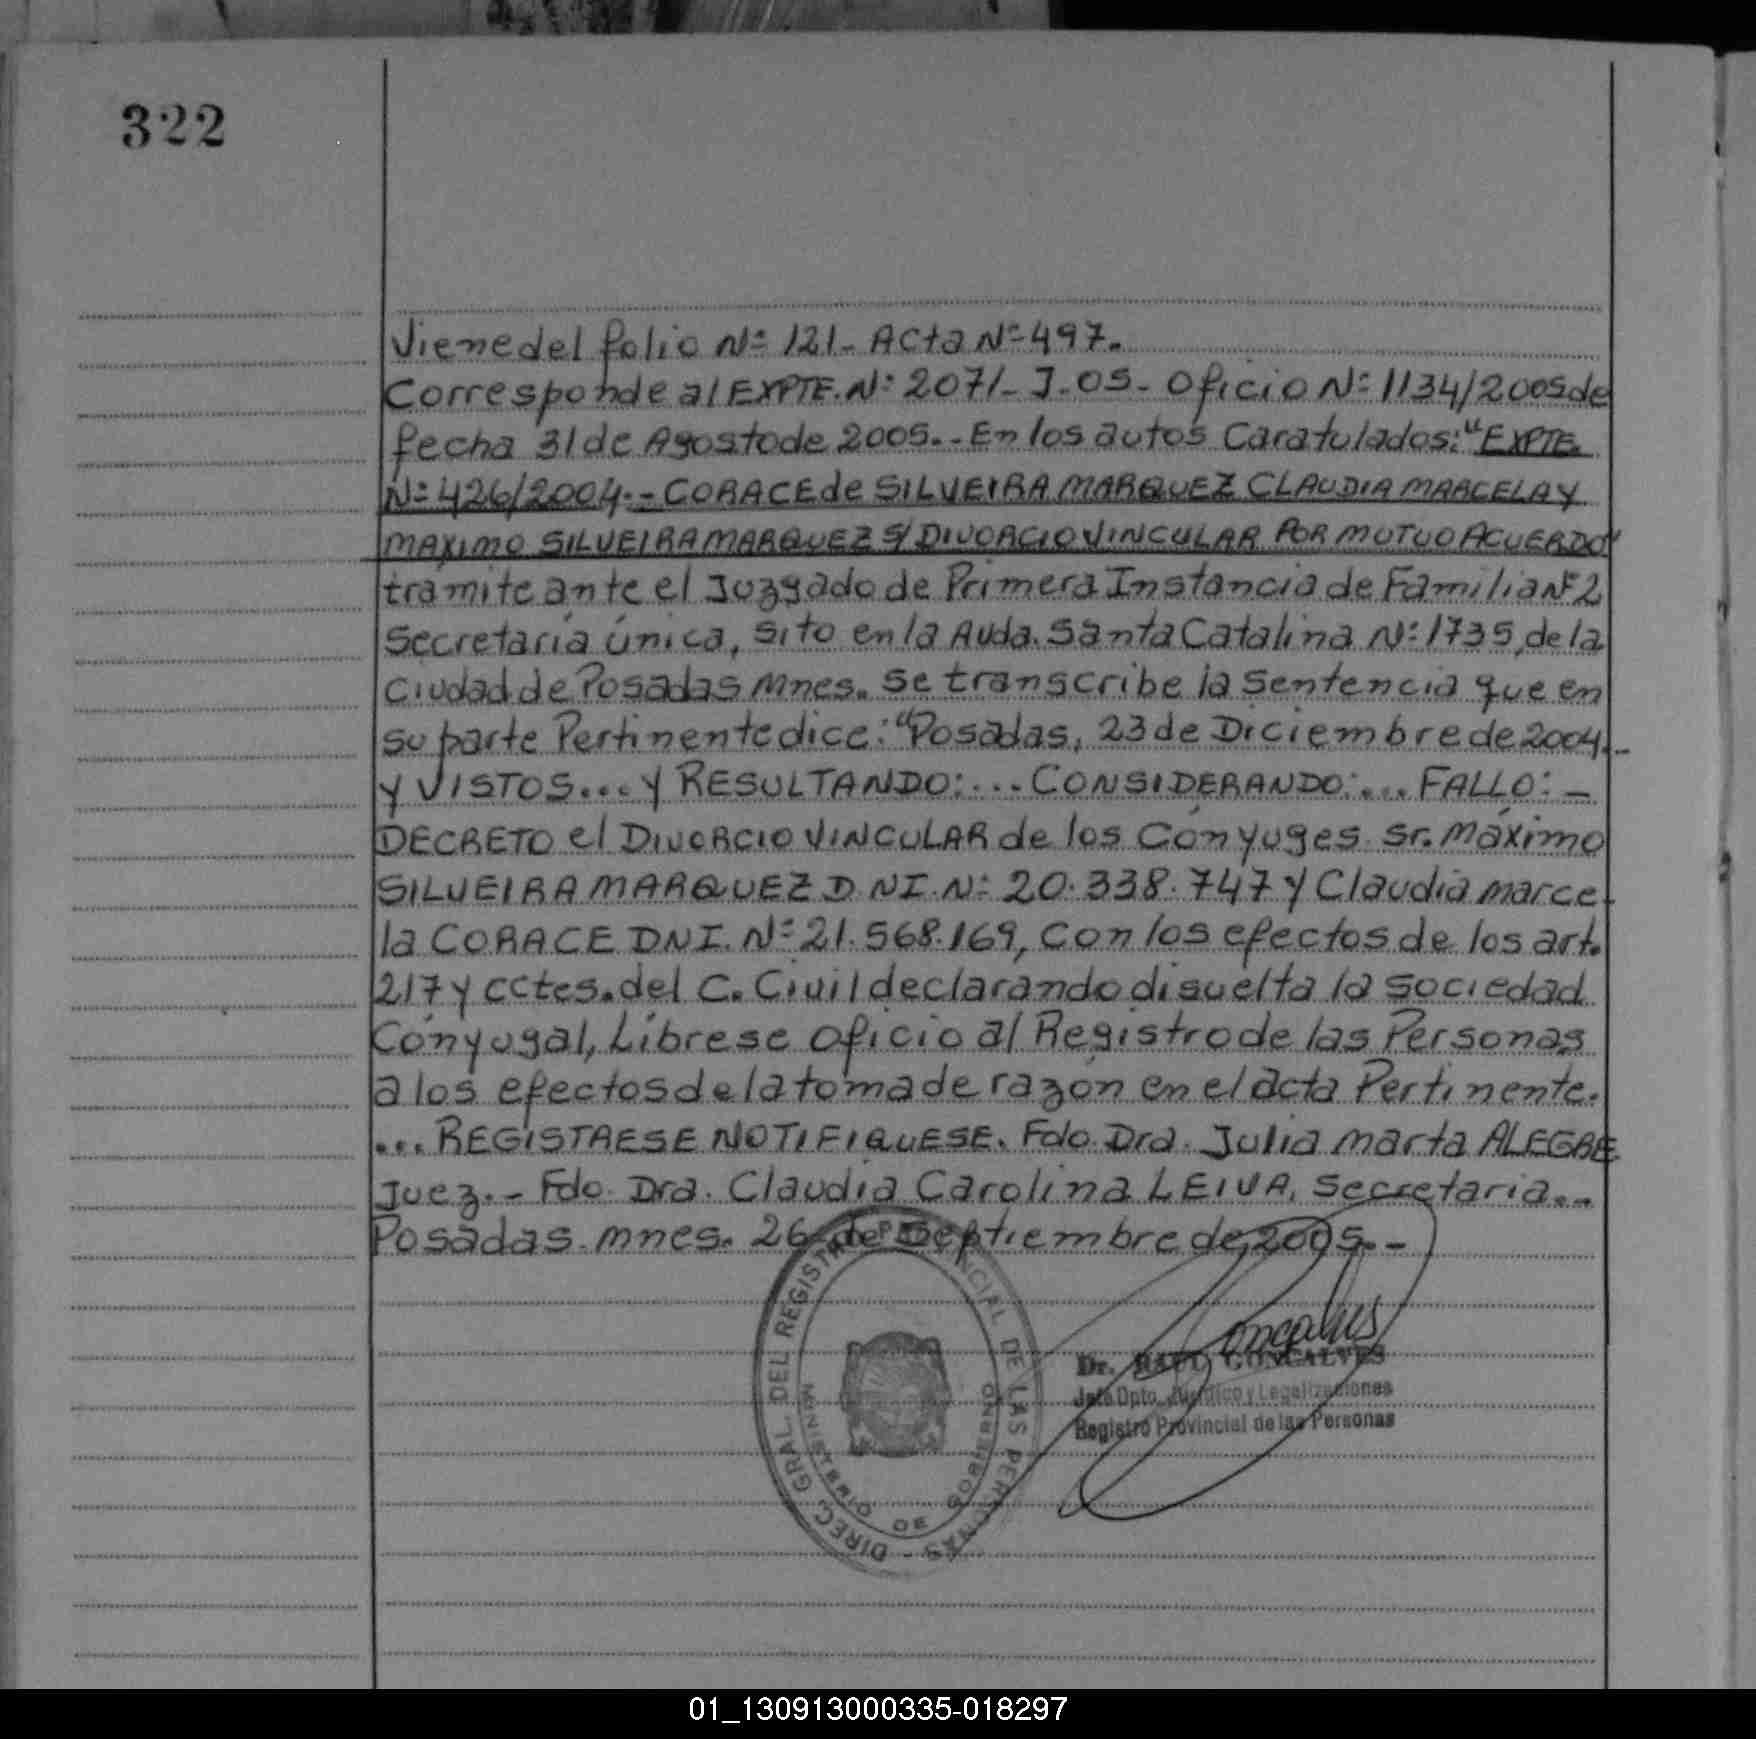 322
Viene del folio Nº 121- Acta Nº 497.
Corresponde al EXPTE. Nº 2071- J-05- Oficio Nº 1134/2005 de
fecha 31 de Agosto de 2005.- En los autos Caratulados: "EXPTE.
Nº 426/2004.- CORACE de SILVEIRA MARQUEZ CLAUDIA MARCELA Y
MAXIMO SILVEIRA MARQUEZ S/ DIVORCIO VINCULAR POR MUTUO ACUERDO"
tramite ante el Juzgado de Primera Instancia de Familia Nº 2
Secretaría única, sito en la Avda. Santa Catalina Nº 1735, de la
Ciudad de Posadas Mnes. Se transcribe la Sentencia que en
su parte Pertinente dice: "Posadas, 23 de Diciembre de 2004.-
Y VISTOS... Y RESULTANDO:... CONSIDERANDO:... FALLO: -
DECRETO el DIVORCIO VINCULAR de los Cónyuges Sr. Máximo
SILVEIRA MARQUEZ D.NI. Nº 20.338.747 Y Claudia Marce-
la CORACE DNI. Nº 21.568.169, Con los efectos de los art.
217 y cctes. del C. Civil declarando disuelta la Sociedad
Cónyugal, Líbrese Oficio al Registro de las Personas
a los efectos de la toma de razón en el acta Pertinente.
... REGISTRESE NOTIFIQUESE. Fdo. Dra. Julia Marta ALEGRE
Juez.- Fdo. Dra. Claudia Carolina LEIVA, Secretaria.-
Posadas. Mnes. 26 de Septiembre de 2005.-
DIREC. GRAL. DEL REGISTRO PROVINCIAL DE LAS PERSONAS -
MINISTERIO DE GOBIERNO
Goncalves
Dr. RAUL GONCALVES
Jefe Dpto. Jurídico y Legalizaciones
Registro Provincial de las Personas
01_130913000335-018297